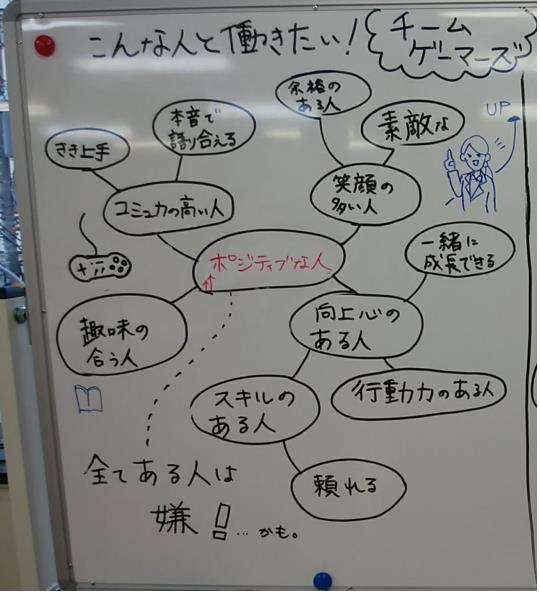 こんな人と働きたい!
チーム
ゲーマーズ
余裕の
ある人
本音で
語り合える
きき上手
素敵な
UP
コミュ力の高い人
笑顔の
多い人
一緒に
成長できる
ポジティブな人
趣味の
合う人
向上心の
ある人
スキルの
ある人
行動力のある人
頼れる
全てある人は
嫌!...かも。